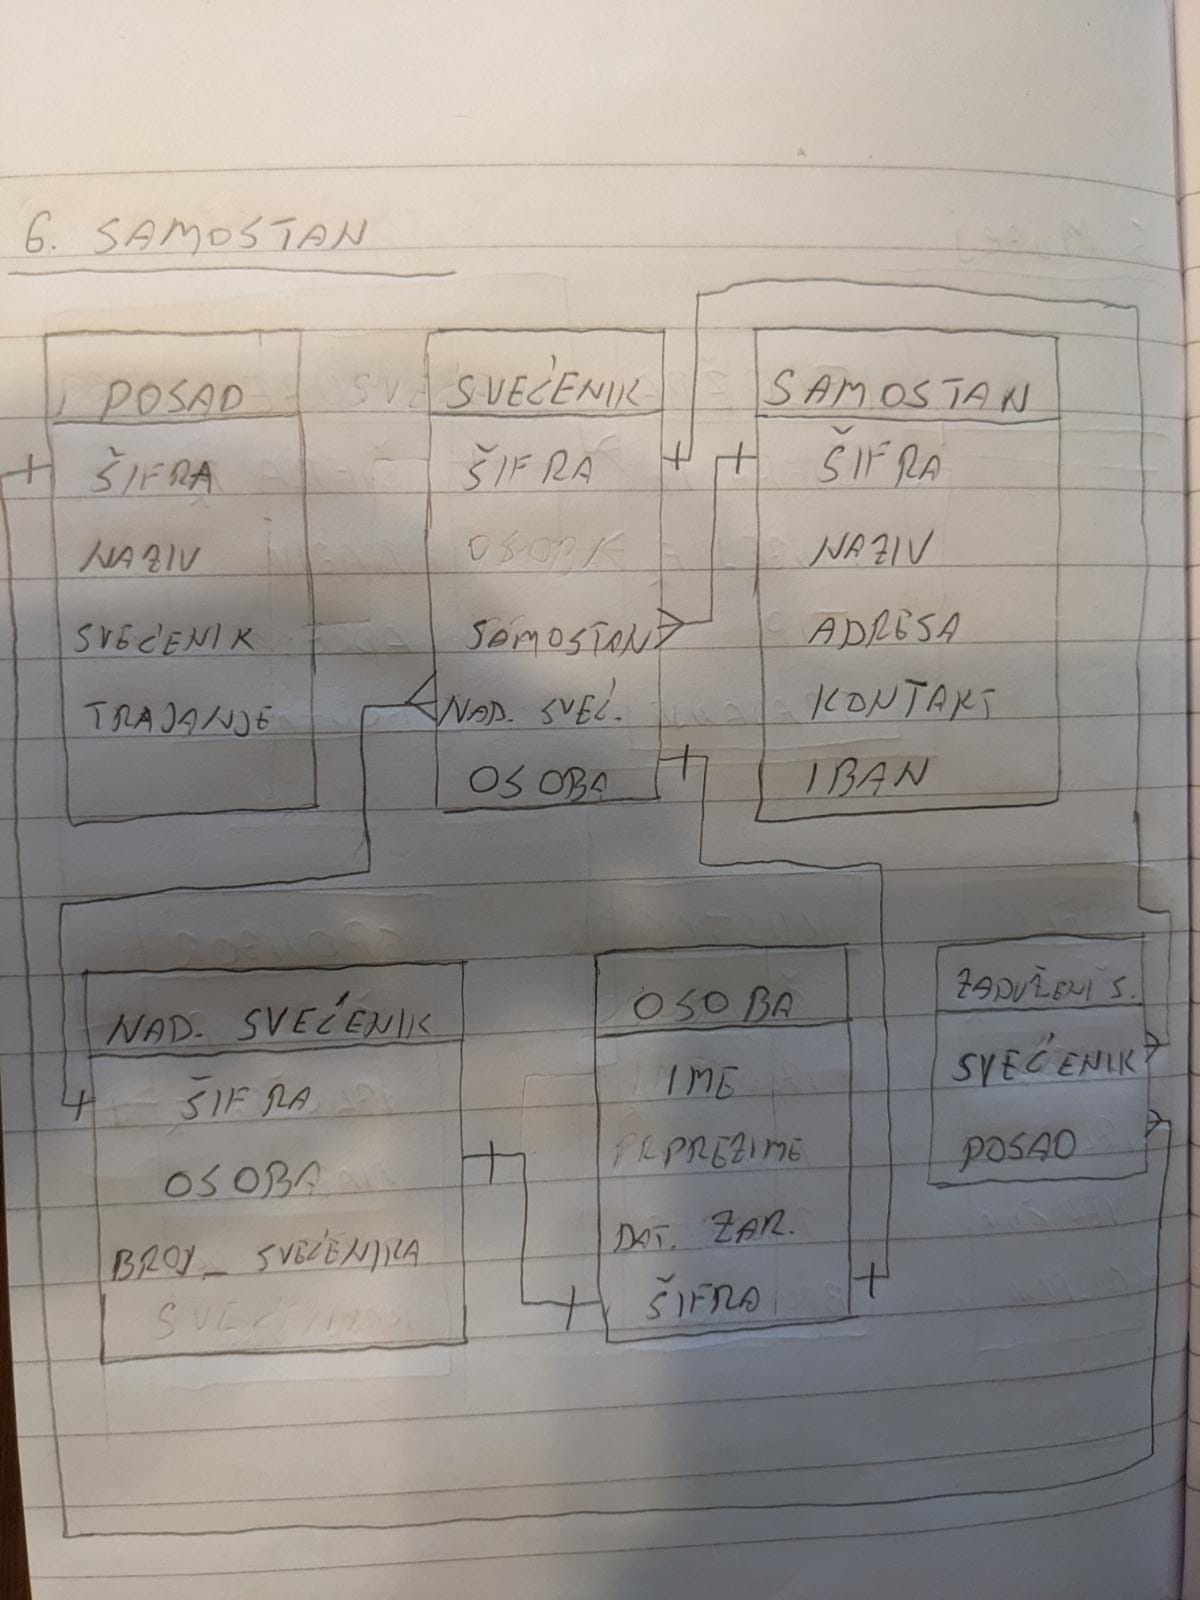 6. SAMOSTAN
POSAO
ŠIFRA
NAZIV
SVEĆENIK
TRAJANJE
SVEĆENIK
ŠIFRA
OSOBA
SAMOSTAN
NAD. SVEĆ.
OSOBA
SAMOSTAN
ŠIFRA
NAZIV
ADRESA
KONTAKT
IBAN
NAD. SVEĆENIK
ŠIFRA
OSOBA
BROJ_SVEĆENIKA
OSOBA
IME
PREZIME
DAT. ZAR.
ŠIFRA
ZADUŽENI S.
SVEĆENIK
POSAO